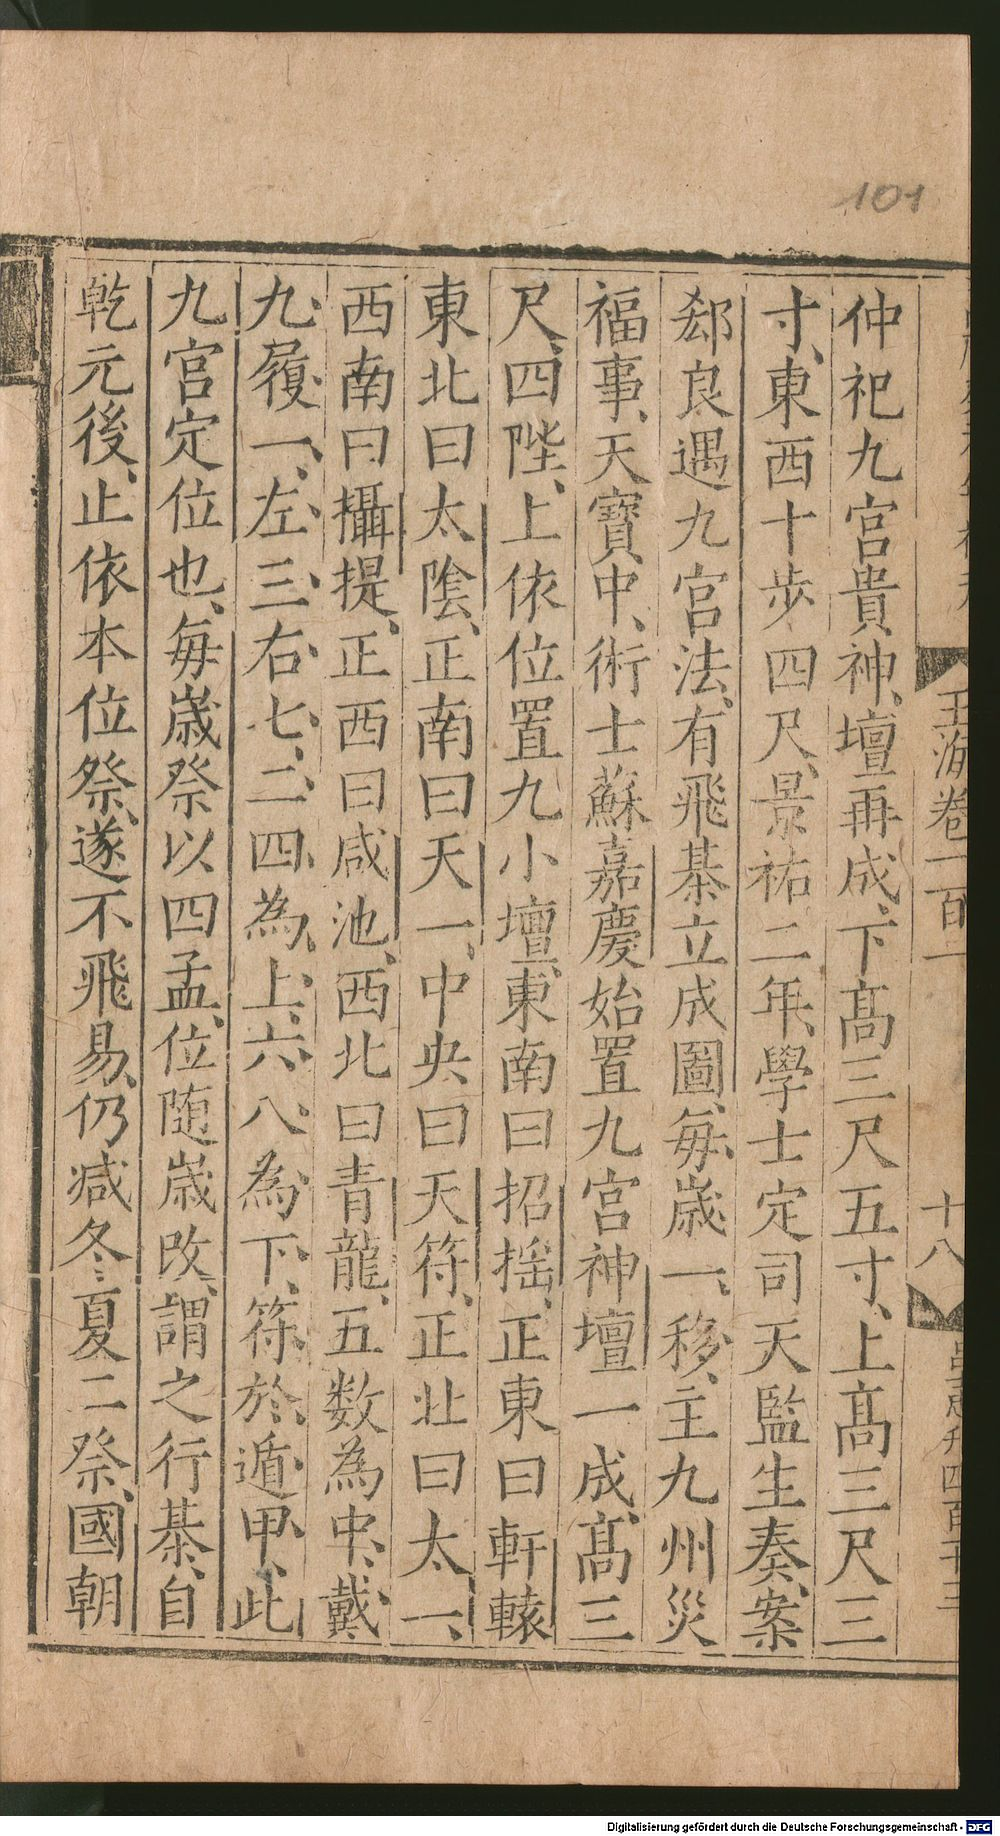 101
玉海卷一百一
十八
仲祀九宮貴神、壇再成、下髙三尺五寸、上髙三尺三
寸、東西十步四尺、景祐二年、學士定司天監生奏、案
郄良遇九宮法、有飛棊立成圖、每歲一、移、主九州災
福事、天寶中、術士蘇嘉慶始置九宮神壇一成、髙三
尺、四陛、上依位置九小壇、東南曰招揺、正東曰軒轅
東北曰太隂、正南曰天一、中央曰天符、正北曰太一、
西南曰攝提、正西曰咸池、西北曰青龍、五数為中、戴
九、履一、左三、右七、二四為上、六八為下、符於遁甲、此
九宮定位也、每歲祭以四孟、位随歲改、謂之行棊、自
乾元後、止依本位祭、遂不飛易、仍减冬夏二祭、國朝
Digitalisierung gefördert durch die Deutsche Forschungsgemeinschaft - DFG